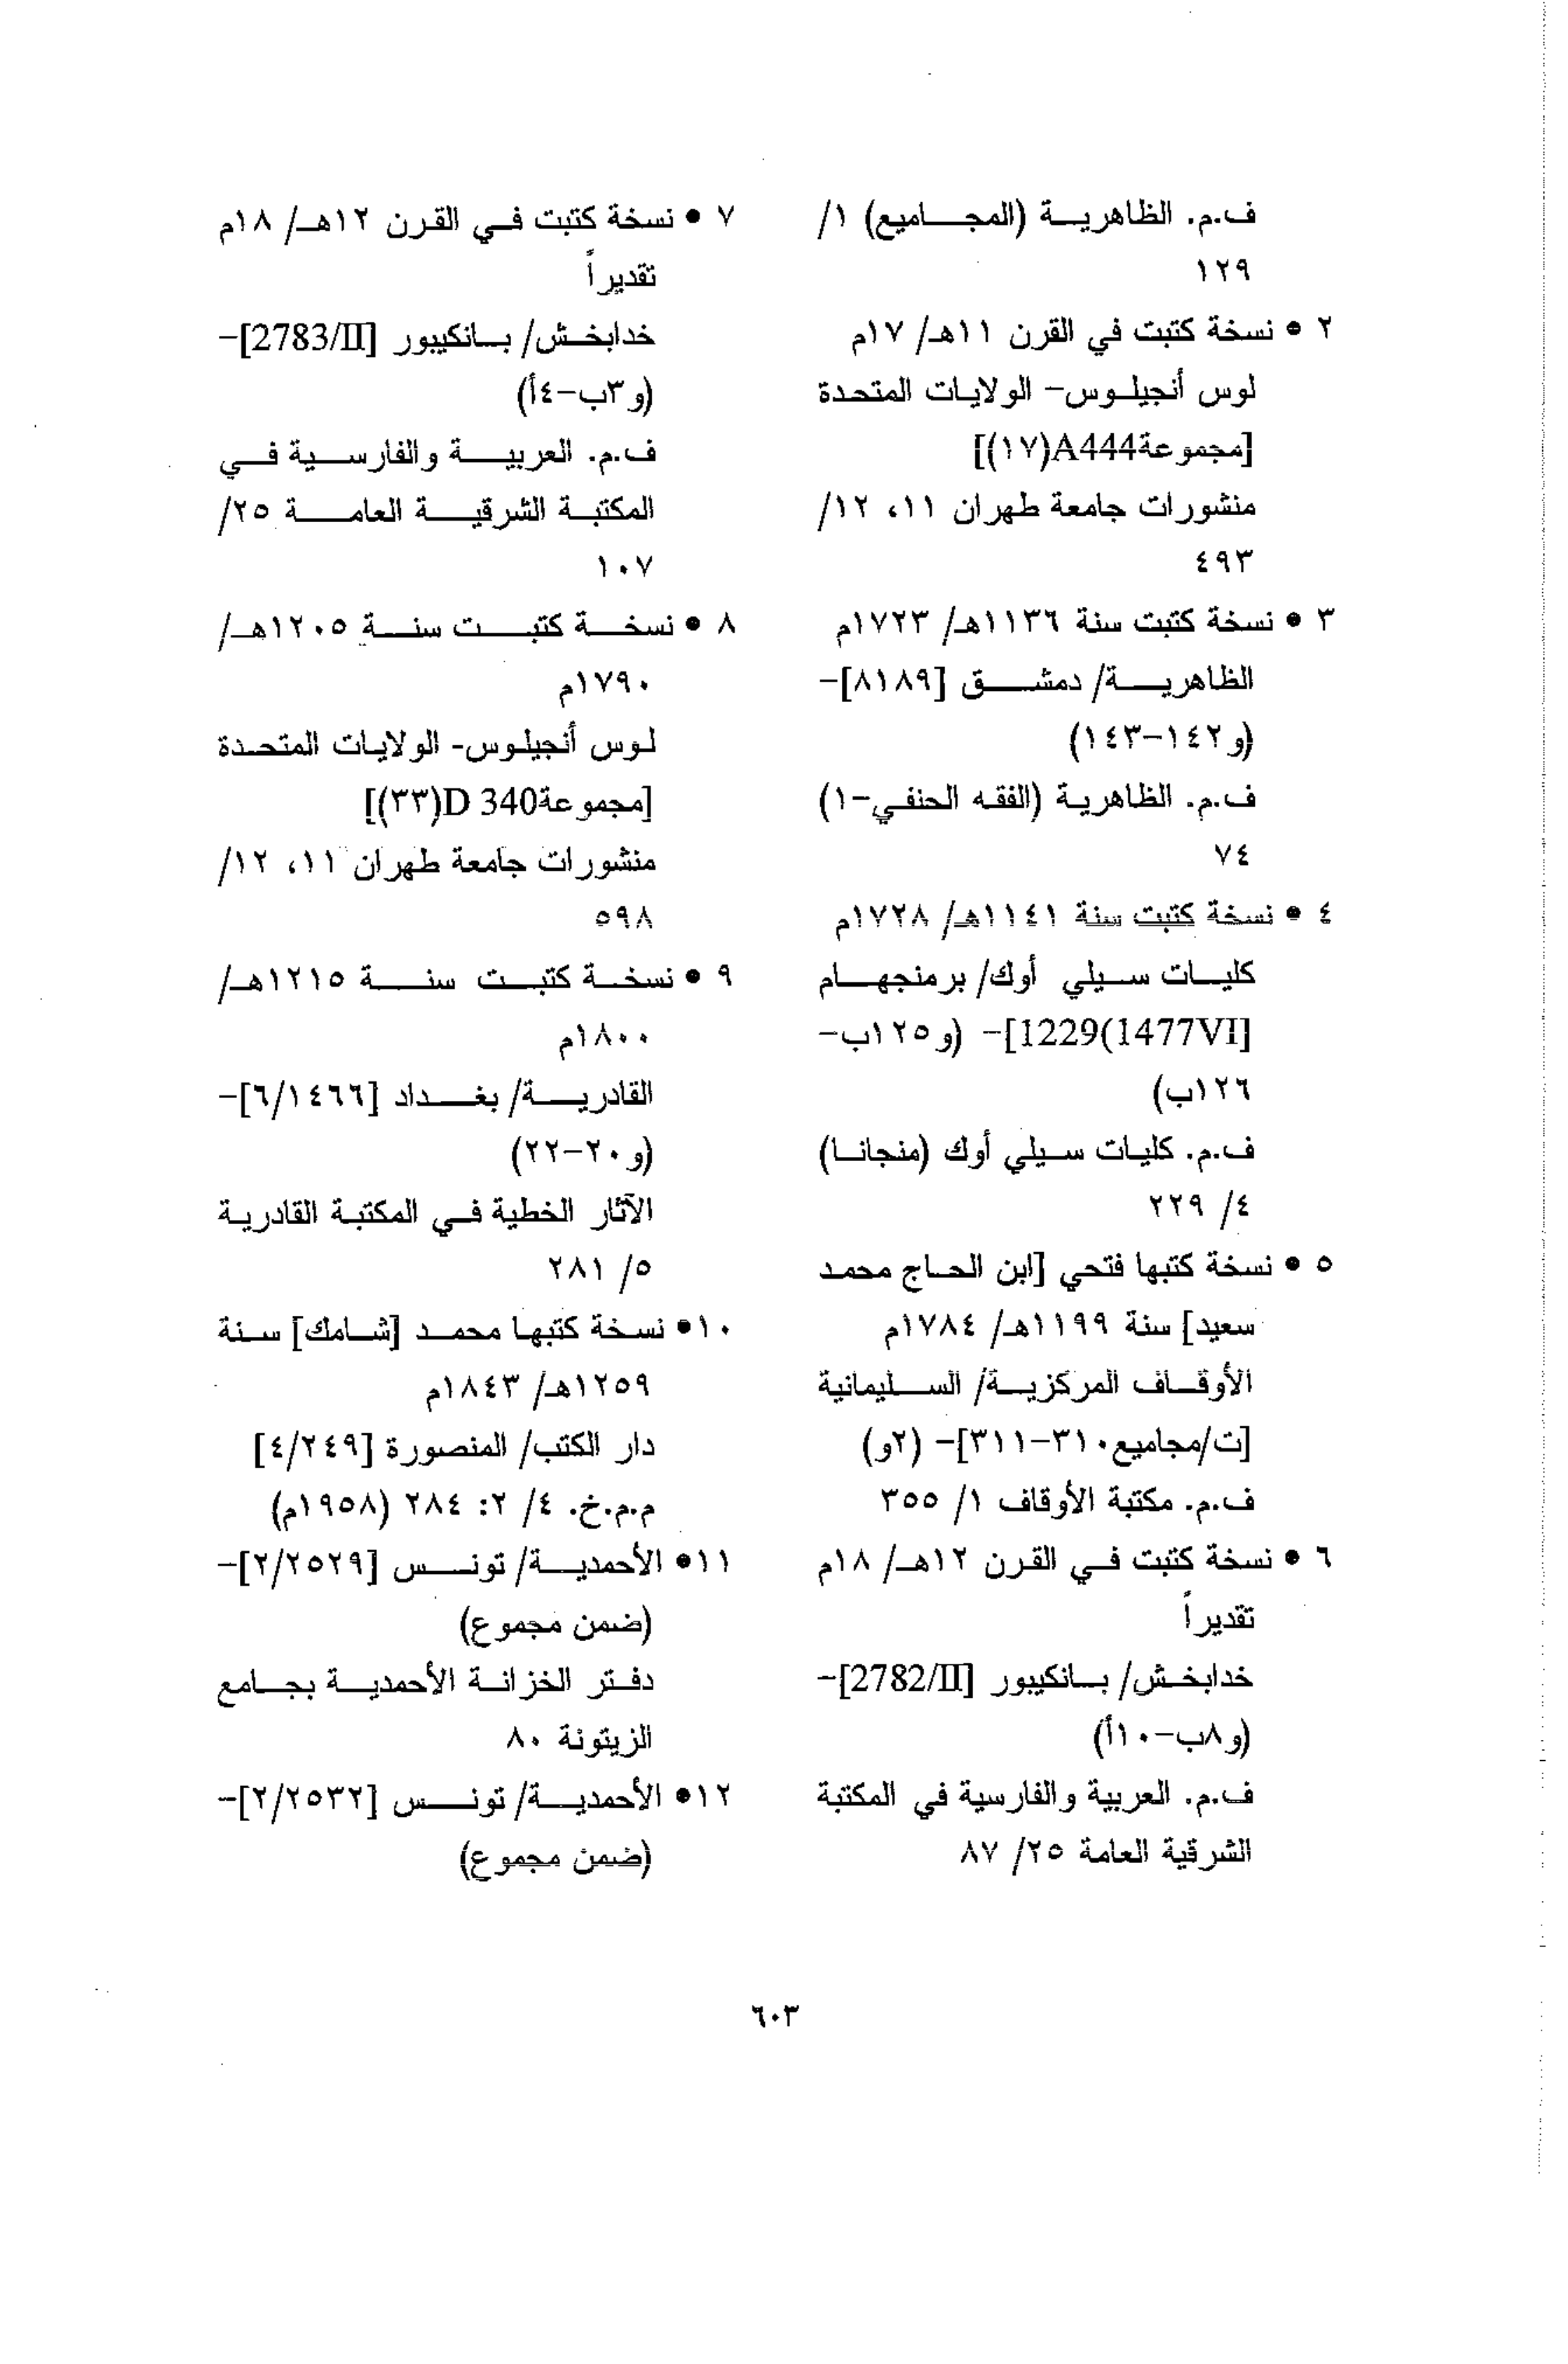 ف.م. الظاهرية (المجاميع) ١/
١٢٩
٢ • نسخة كتبت في القرن ١١هـ/ ١٧م
لوس أنجيلوس- الولايات المتحدة
[مجموعةA444(١٧)]
منشورات جامعة طهران ١١، ١٢/
٤٩٣
٣ • نسخة كتبت سنة ١١٣٦هـ/ ١٧٢٣م
الظاهرية/ دمشق [٨١٨٩]-
(و١٤٢-١٤٣)
ف.م. الظاهرية (الفقه الحنفي-١)
٧٤
٤ • نسخة كتبت سنة ١١٤١هـ/ ١٧٢٨م
كليات سيلي أوك/ برمنجهام
[1229(1477VI]- (و١٢٥ب-
١٢٦ب)
ف.م. كليات سيلي أوك (منجانا)
٤/ ٢٢٩
٥ • نسخة كتبها فتحي [ابن الحاج محمد
سعيد] سنة ١١٩٩هـ/ ١٧٨٤م
الأوقاف المركزية/ السليمانية
[ت/مجاميع٣١٠-٣١١]- (٢و)
ف.م. مكتبة الأوقاف ١/ ٣٥٥
٦ • نسخة كتبت في القرن ١٢هـ/ ١٨م
تقديراً
خدابخش/ بانكيبور [2782/II]-
(و٨ب-١٠أ)
ف.م. العربية والفارسية في المكتبة
الشرقية العامة ٢٥/ ٨٧
٧ • نسخة كتبت في القرن ١٢هـ/ ١٨م
تقديراً
خدابخش/ بانكيبور [2783/II]-
(و٣ب-٤أ)
ف.م. العربية والفارسية في
المكتبة الشرقية العامة ٢٥/
١٠٧
٨ • نسخة كتبت سنة ١٢٠٥هـ/
١٧٩٠م
لوس أنجيلوس- الولايات المتحدة
[مجموعةD 340(٣٣)]
منشورات جامعة طهران ١١، ١٢/
٥٩٨
٩ • نسخة كتبت سنة ١٢١٥هـ/
١٨٠٠م
القادرية/ بغداد [٦/١٤٦٦]-
(و٢٠-٢٢)
الآثار الخطية في المكتبة القادرية
٥/ ٢٨١
١٠• نسخة كتبها محمد [شامك] سنة
١٢٥٩هـ/ ١٨٤٣م
دار الكتب/ المنصورة [٤/٢٤٩]
م.م.خ. ٤/ ٢: ٢٨٤ (١٩٥٨م)
١١• الأحمدية/ تونس [٢/٢٥٢٩]-
(ضمن مجموع)
دفتر الخزانة الأحمدية بجامع
الزيتونة ٨٠
١٢• الأحمدية/ تونس [٢/٢٥٣٢]-
(ضمن مجموع)
٦٠٣